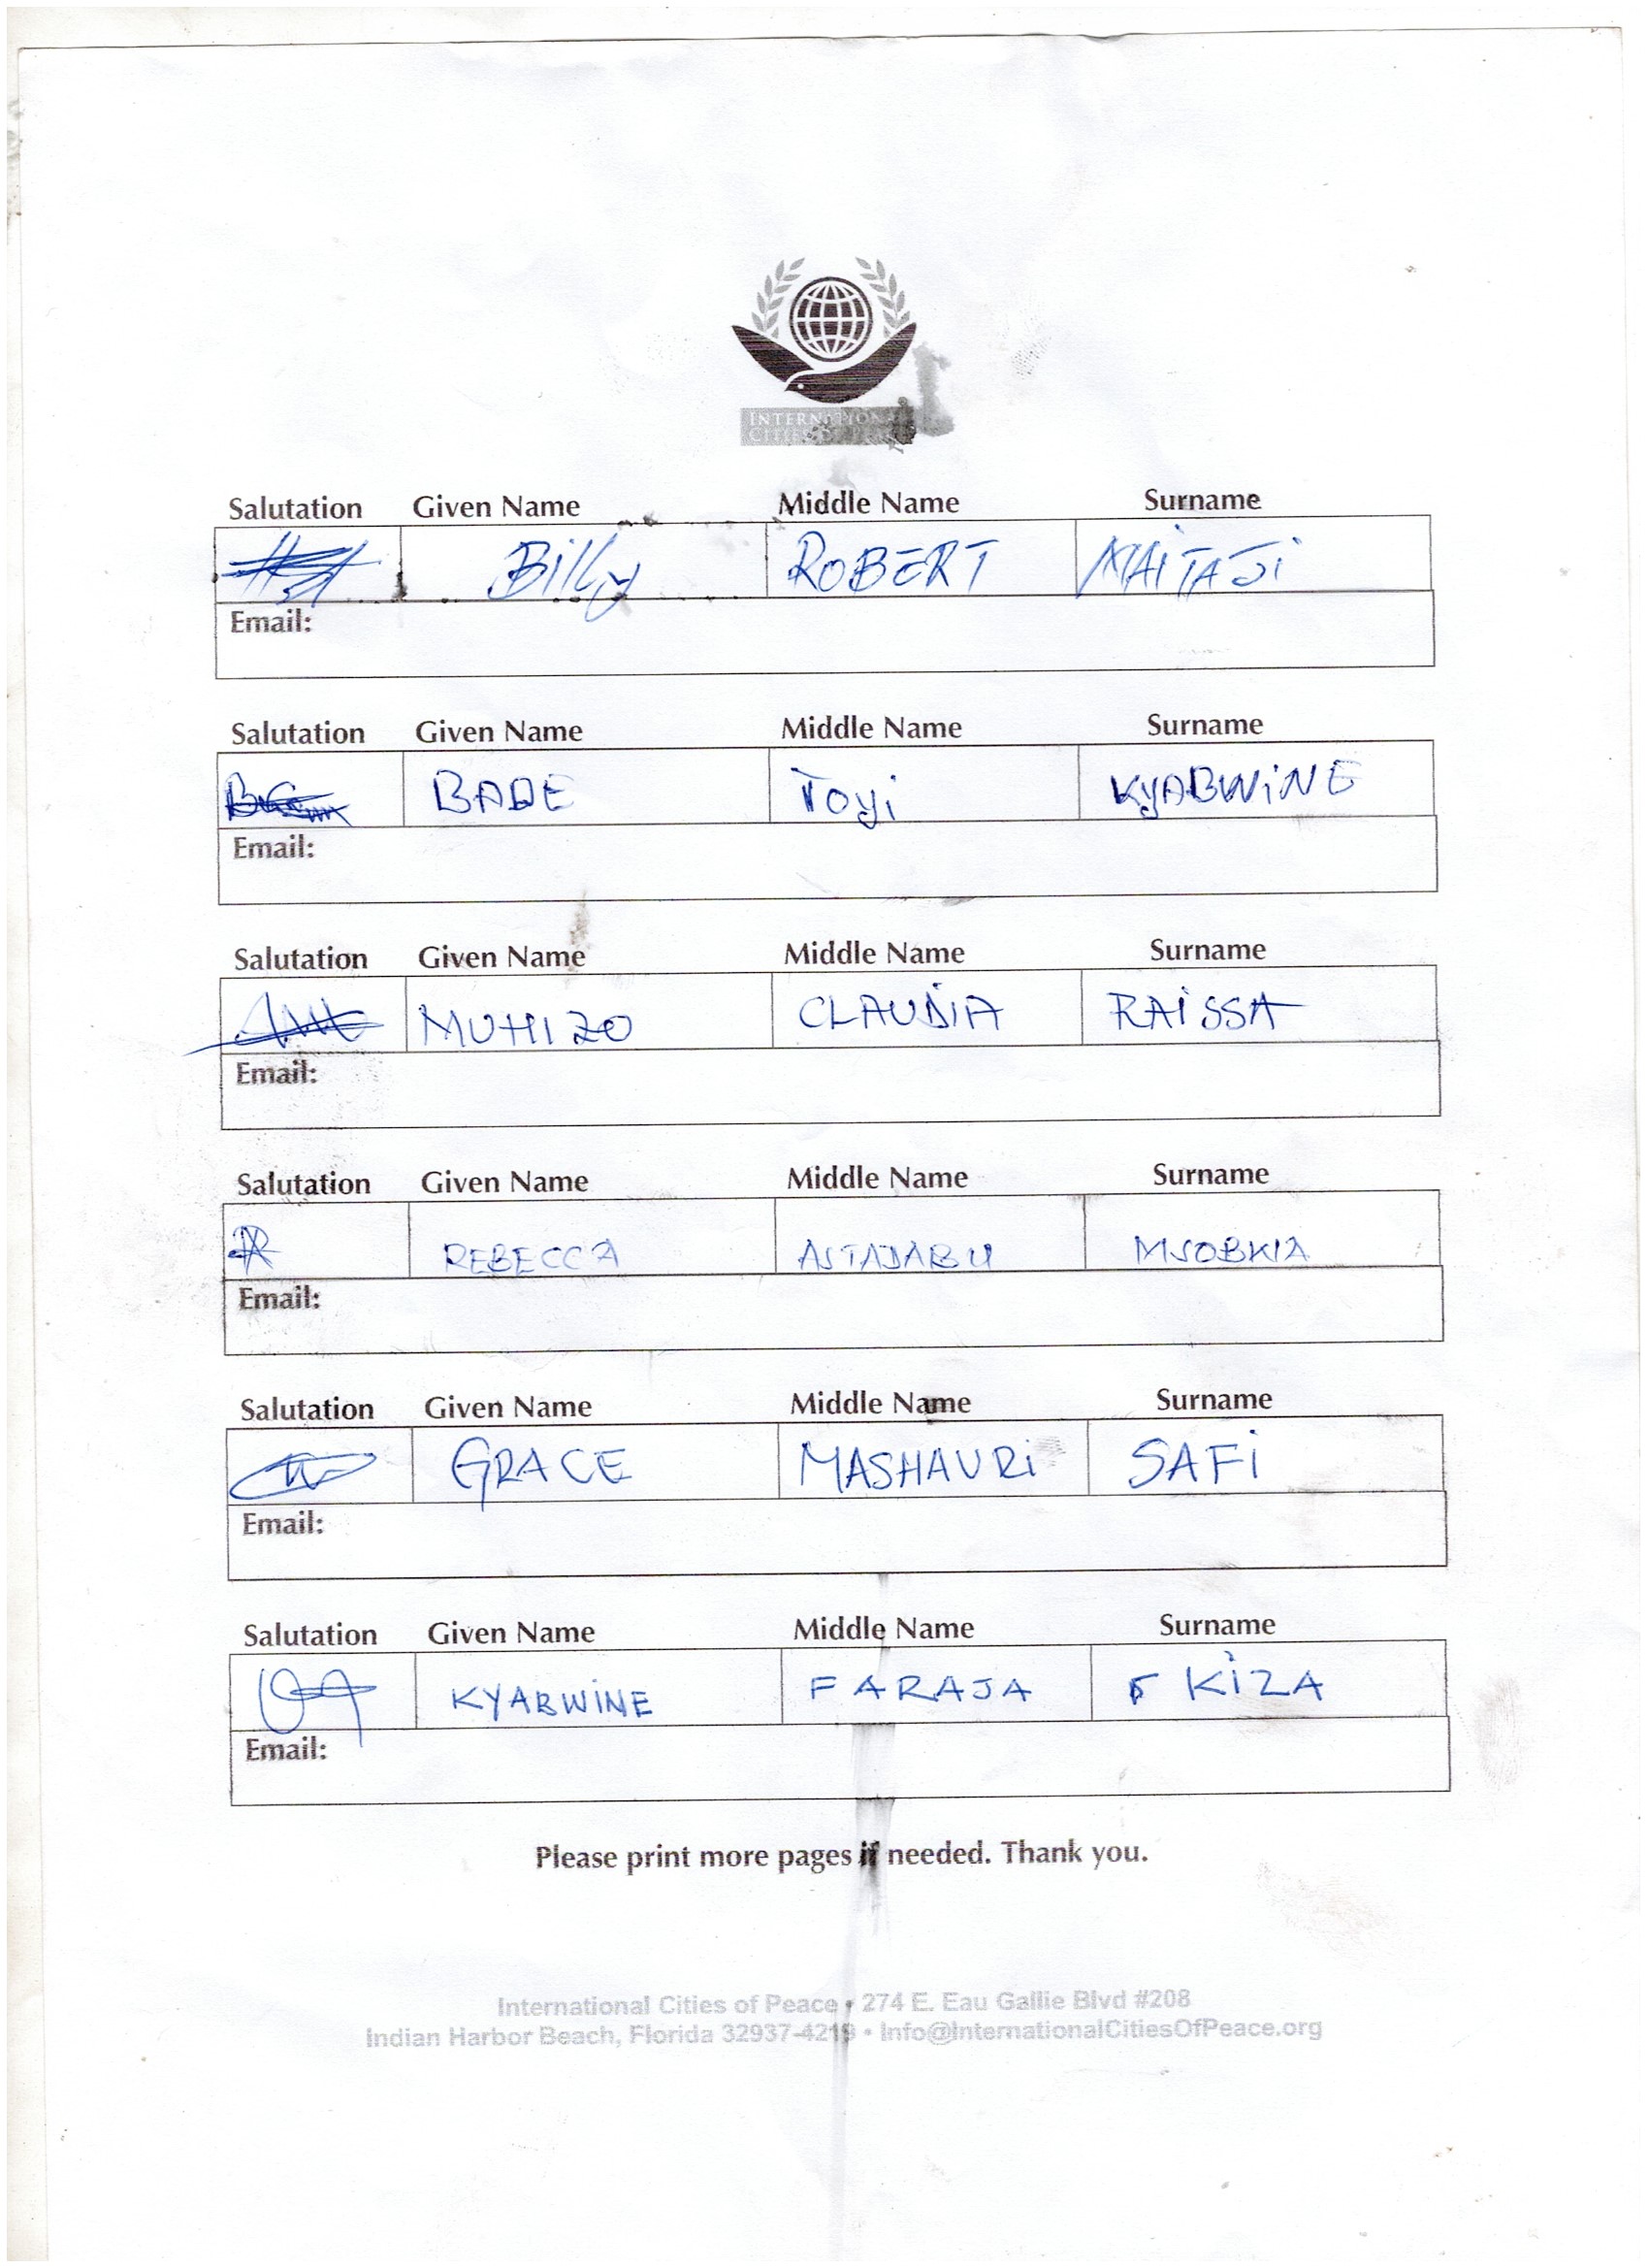 INTERNATIONAL
CITIES OF PEACE
Salutation Given Name Middle Name Surname
Billy ROBERT MAITAJI
Email:
Salutation Given Name Middle Name Surname
BADE Toyi KYABWINE
Email:
Salutation Given Name Middle Name Surname
MUHIZO CLAUDIA RAISSA
Email:
Salutation Given Name Middle Name Surname
REBECCA
Email:
Salutation Given Name Middle Name Surname
GRACE MASHAURI SAFI
Email:
Salutation Given Name Middle Name Surname
KYABWINE FARAJA KIZA
Email:
Please print more pages if needed. Thank you.
International Cities of Peace • 274 E. Eau Gallie Blvd #208
Indian Harbor Beach, Florida 32937-4219 • Info@InternationalCitiesOfPeace.org